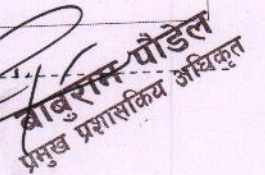 बाबुराम पौडेल
प्रमुख प्रशासकिय अधिकृत